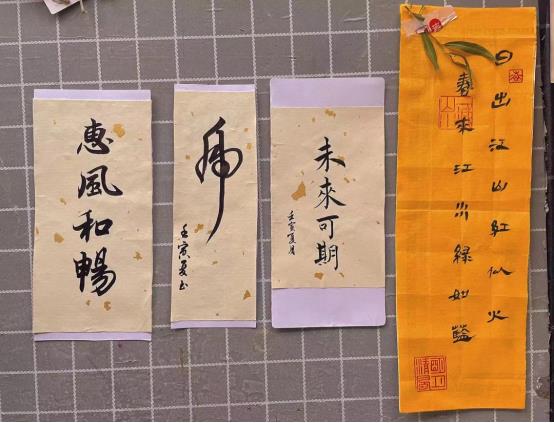 惠風和暢
虎
壬寅夏
未來可期
壬寅夏月
日出江山紅似火
春来江水緑如藍